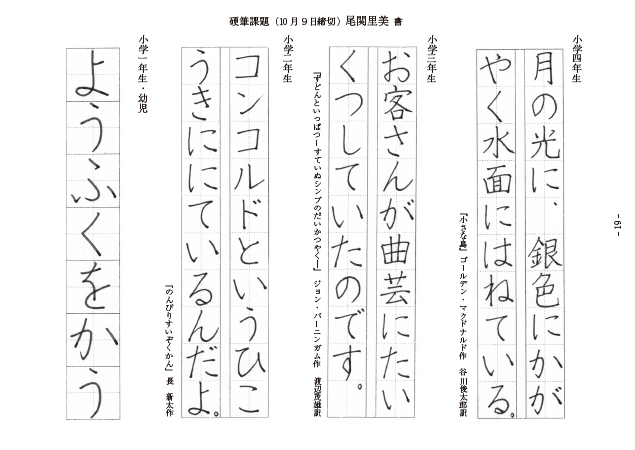 硬筆課題（10月9日締切）尾関里美 書
小学四年生
月の光に、銀色にかが
やく水面にはねている。
『小さな島』ゴールデン・マクドナルド作 谷川俊太郎訳
小学三年生
お客さんが曲芸にたい
くつしていたのです。
『ずどんといっぱつーすていぬシンプのだいかつやくー』ジョン・バーニンガム作 渡辺茂雄訳
小学二年生
コンコルドというひこ
うきににているんだよ。
『のんびりすいぞくかん』長 新太作
小学一年生・幼児
ようふくをかう
- 19 -